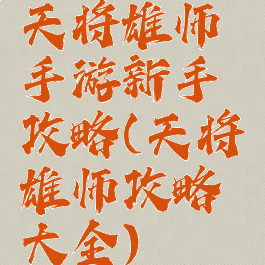 天将雄师
手游新手
攻略(天将
雄师攻略
大全)